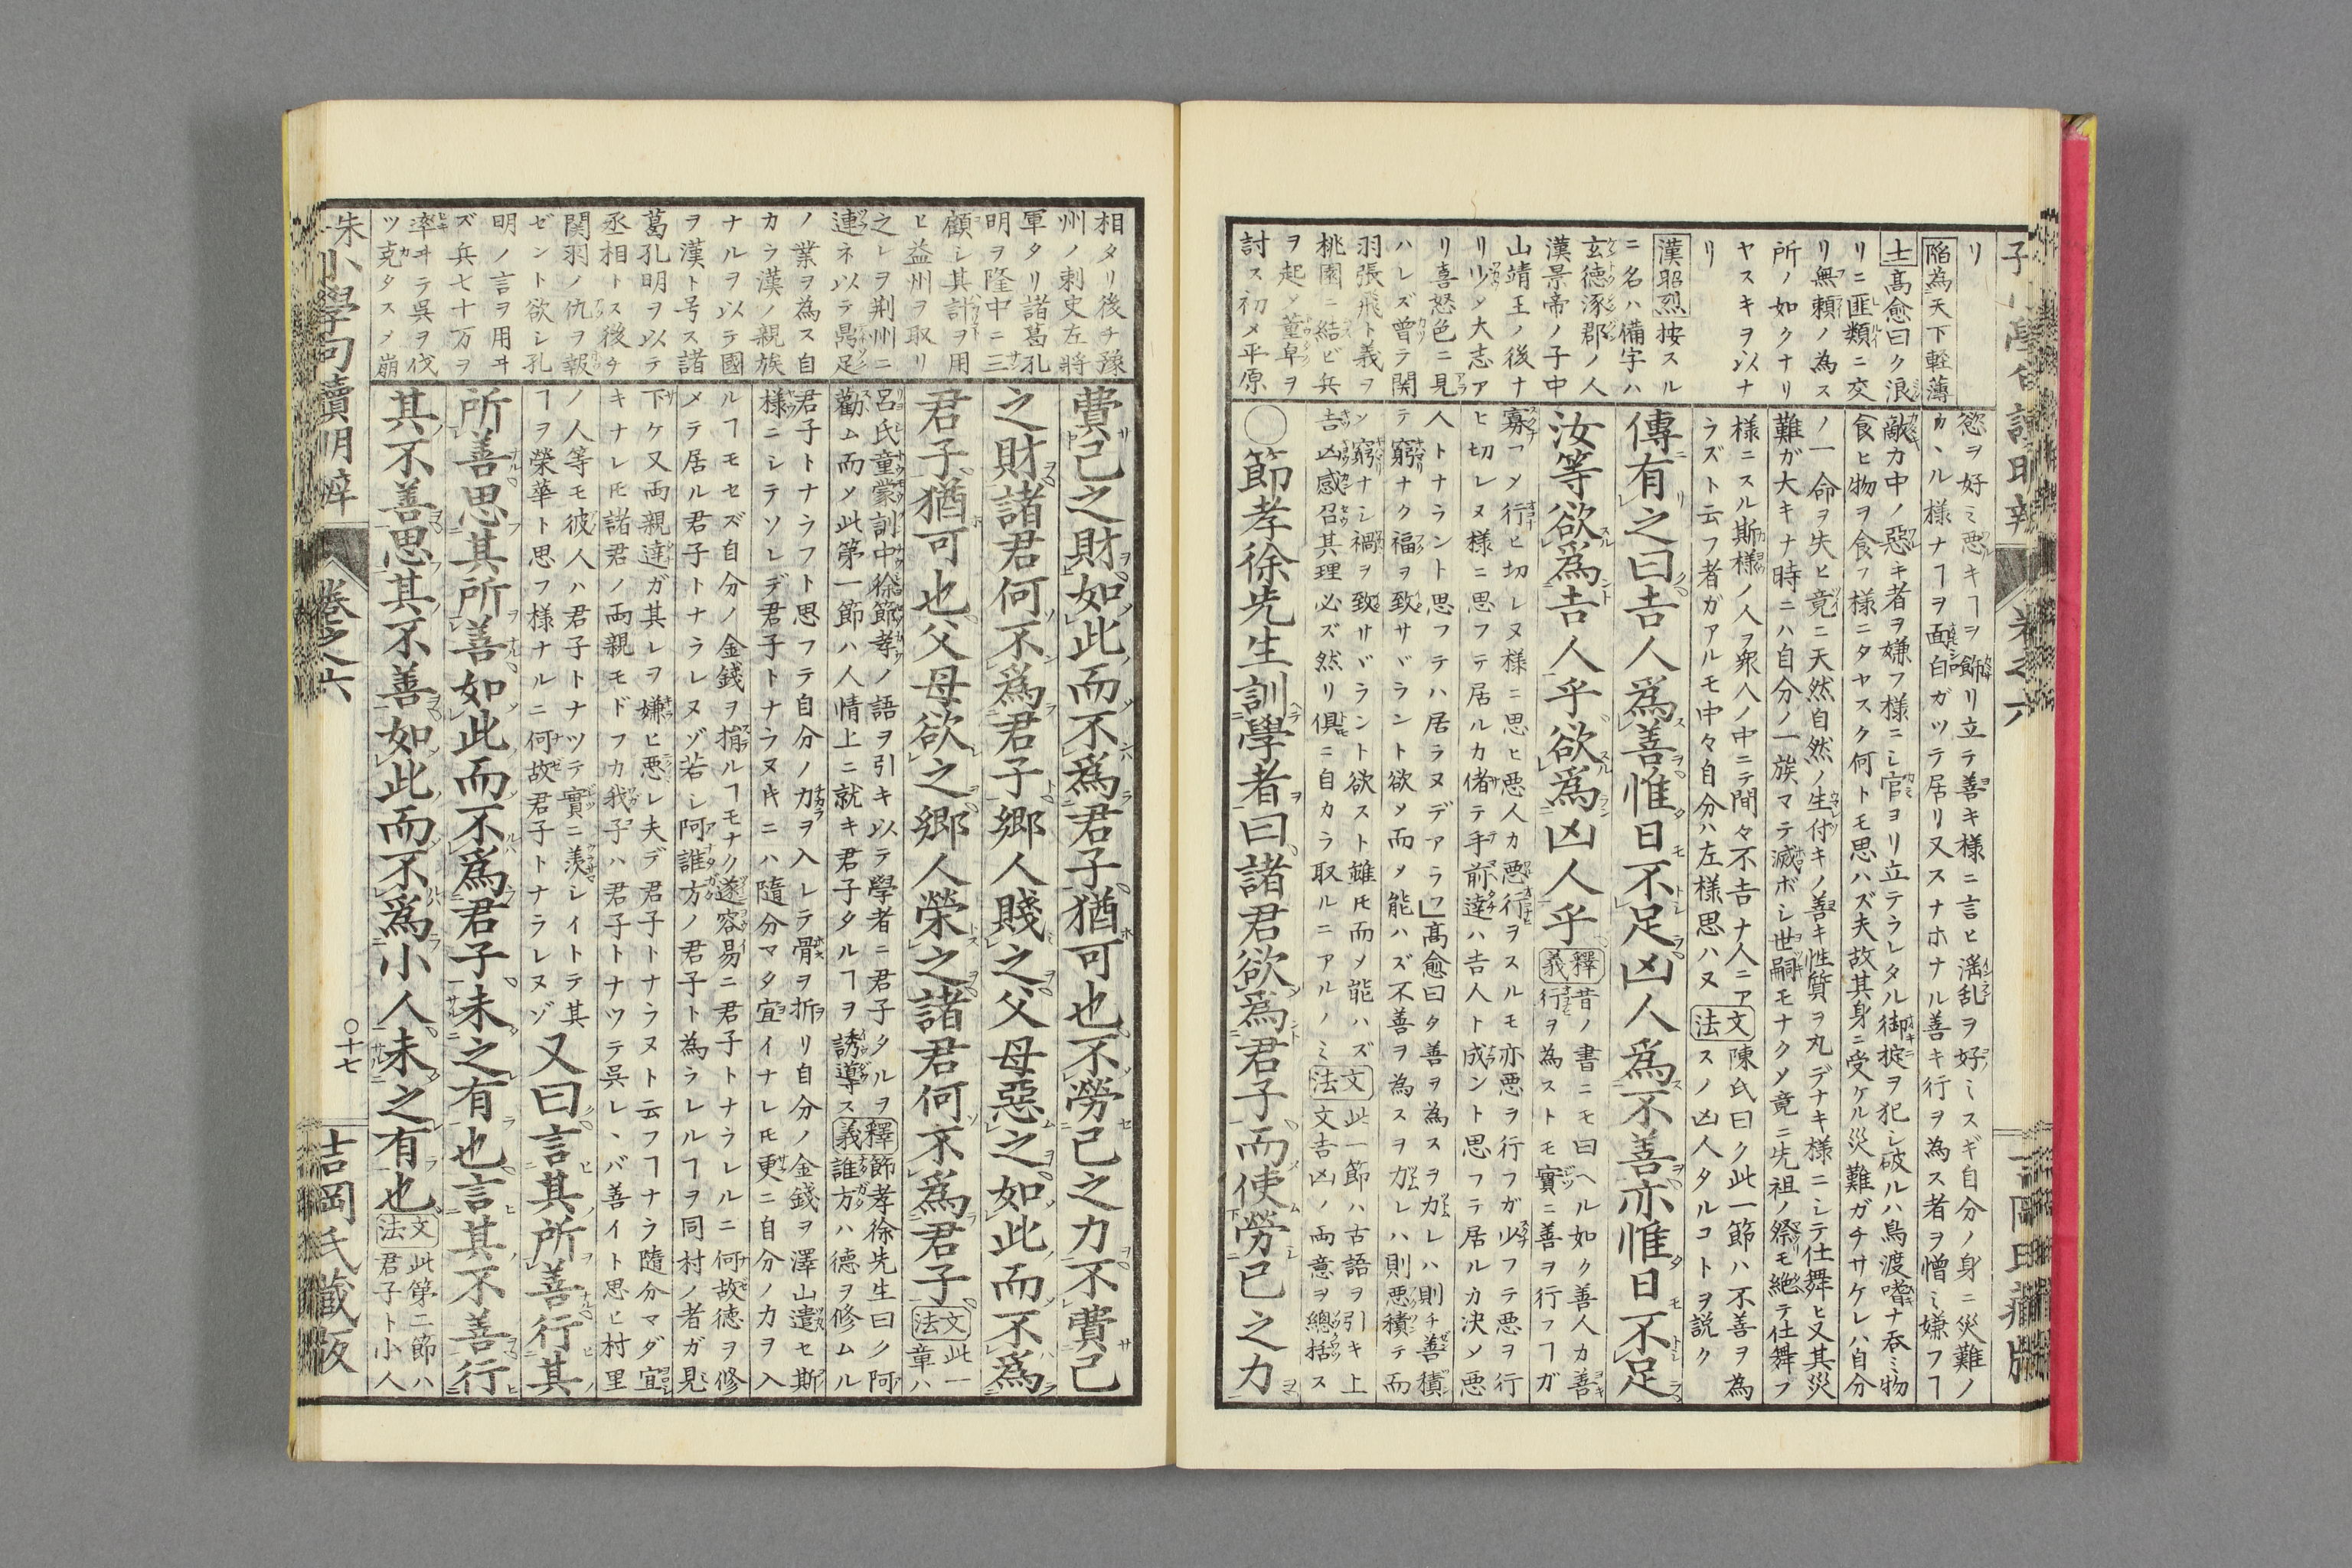 リ
陷為天下輕薄
士髙愈曰ク浪
リニ匪類ニ交
リ無頼ノ為ス
所ノ如クナリ
ヤスキヲ以ナ
リ
漢昭烈按スル
ニ名ハ備字ハ
玄徳涿郡ノ人
漢景帝ノ子中
山靖王ノ後ナ
リ少メ大志ア
リ喜怒色ニ見
ハレズ曽テ関
羽張飛ト義ヲ
桃園ニ結ビ兵
ヲ起メ董卓ヲ
討ス初メ平原
慾ヲ好ミ悪キヿヲ飾リ立テ善キ様ニ言ヒ滛乱ヲ好ミスギ自分ノ身ニ災難ノ
カヽル様ナヿヲ面白ガツテ居リ又スナホナル善キ行ヲ為ス者ヲ憎ミ嫌フヿ
敵カ中ノ惡キ者ヲ嫌フ様ニシ官ヨリ立テラレタル御掟ヲ犯シ破ルハ鳥渡嗜ナ呑ミ物
食ヒ物ヲ食フ様ニタヤスク何トモ思ハズ夫故其身ニ受ケル災難ガチサケレハ自分
ノ一命ヲ失ヒ竟ニ天然自然ノ生付キノ善キ性質ヲ丸デナキ様ニシテ仕舞ヒ又其災
難ガ大キナ時ニハ自分ノ一族マテ滅ボシ世嗣モナクメ竟ニ先祖ノ祭モ絶テ仕舞フ
様ニスル斯様ノ人ヲ衆人ノ中ニテ間々不𠮷ナ人ニア
ラズト云フ者ガアルモ中々自分ハ左様思ハヌ
文法
陳氏曰ク此一節ハ不善ヲ為
スノ凶人タルコトヲ説ク
傳有之曰吉人爲善惟日不足凶人爲不善亦惟日不足
汝等欲爲吉人乎欲爲凶人乎
釋義
昔ノ書ニモ曰ヘル如ク善人カ善
行ヲ為ストモ實ニ善ヲ行フヿガ
寡フメ行ヒ切レヌ様ニ思ヒ悪人カ悪行ヲスルモ亦悪ヲ行フガ少フテ悪ヲ行
ヒ切レヌ様ニ思フテ居ルカ偖テ手前達ハ吉人ト成ント思フテ居ルカ决メ悪
人トナラント思フテハ居ラヌデアラフ」髙愈曰タ善ヲ為スヲ力レハ則チ善積
テ窮リナク福ヲ致サヾラント欲メ而メ能ハズ不善ヲ為スヲ力レハ則悪積テ而
ン窮ナシ禍ヲ致サヾラント欲スト雖𪜈而メ能ハズ
吉凶感召其理必ズ然リ俱ニ自カラ取ルニアルノミ
文法
此一節ハ古語ヲ引キ上
文吉凶ノ両意ヲ總括ス
〇節孝徐先生訓學者曰諸君欲爲君子而使勞己之力
相タリ後チ豫
州ノ刺史左將
軍タリ諸葛孔
明ヲ隆中ニ三
顧シ其計ヲ用
ヒ益州ヲ取リ
之レヲ荆州ニ
連ネ以テ鼎足
ノ業ヲ為ス自
カラ漢ノ親族
ナルヲ以テ國
ヲ漢ト号ス諸
葛孔明ヲ以テ
丞相トス後チ
関羽ノ仇ヲ報
ゼント欲シ孔
明ノ言ヲ用ヰ
ズ兵七十万ヲ
率ヰテ吳ヲ伐
ツ克タスメ崩
費己之財如此而不爲君子猶可也不勞己之力不費己
之財諸君何不爲君子郷人賤之父母惡之如此而不爲
君子猶可也父母欲之郷人榮之諸君何不爲君子
文法
此一
章ハ
呂氏童蒙訓中徐節孝ノ語ヲ引キ以テ學者ニ君子タルヲ
勸ム而メ此第一節ハ人情上ニ就キ君子タルヿヲ誘導ス
釋義
節孝徐先生曰ク阿
誰方ハ徳ヲ修ムル
君子トナラフト思フテ自分ノ力ヲ入レテ骨ヲ折リ自分ノ金錢ヲ澤山遣セ斯
様ニシテソレデ君子トナラヌ𪜈ニハ隨分マタ宜イナレ𪜈更ニ自分ノ力ヲ入
ルヿモセズ自分ノ金錢ヲ損ルヿモナク遂容易ニ君子トナラレルニ何故徳ヲ修
メテ居ル君子トナラレヌゾ若シ阿誰方ノ君子ト為ラレルヿヲ同村ノ者ガ見
下ケ又両親達ガ其レヲ嫌ヒ悪レ夫デ君子トナラヌト云フヿナラ隨分マダ宜
キナレ𪜈諸君ノ両親モドフカ我子ハ君子トナツテ呉レヽバ善イト思ヒ村里
ノ人等モ彼人ハ君子トナツテ實ニ羨シイトテ其
ヿヲ榮華ト思フ様ナルニ何故君子トナラレヌゾ
又曰言其所善行其
所善思其所善如此而不爲君子未之有也言其不善行
其不善思其不善如此而不爲小人未之有也
文法
此第二節ハ
君子ト小人
朱小學句讀明辨
卷之六
〇十七
吉岡氏藏版